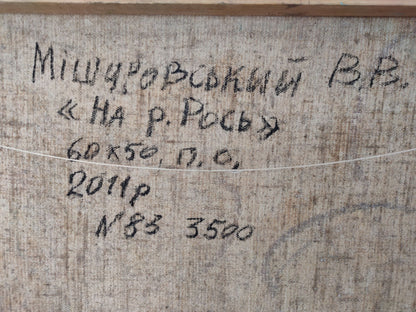 Мішуровський В.В.
«На р. Рось»
60x50, п.о,
2011р
N83 3500